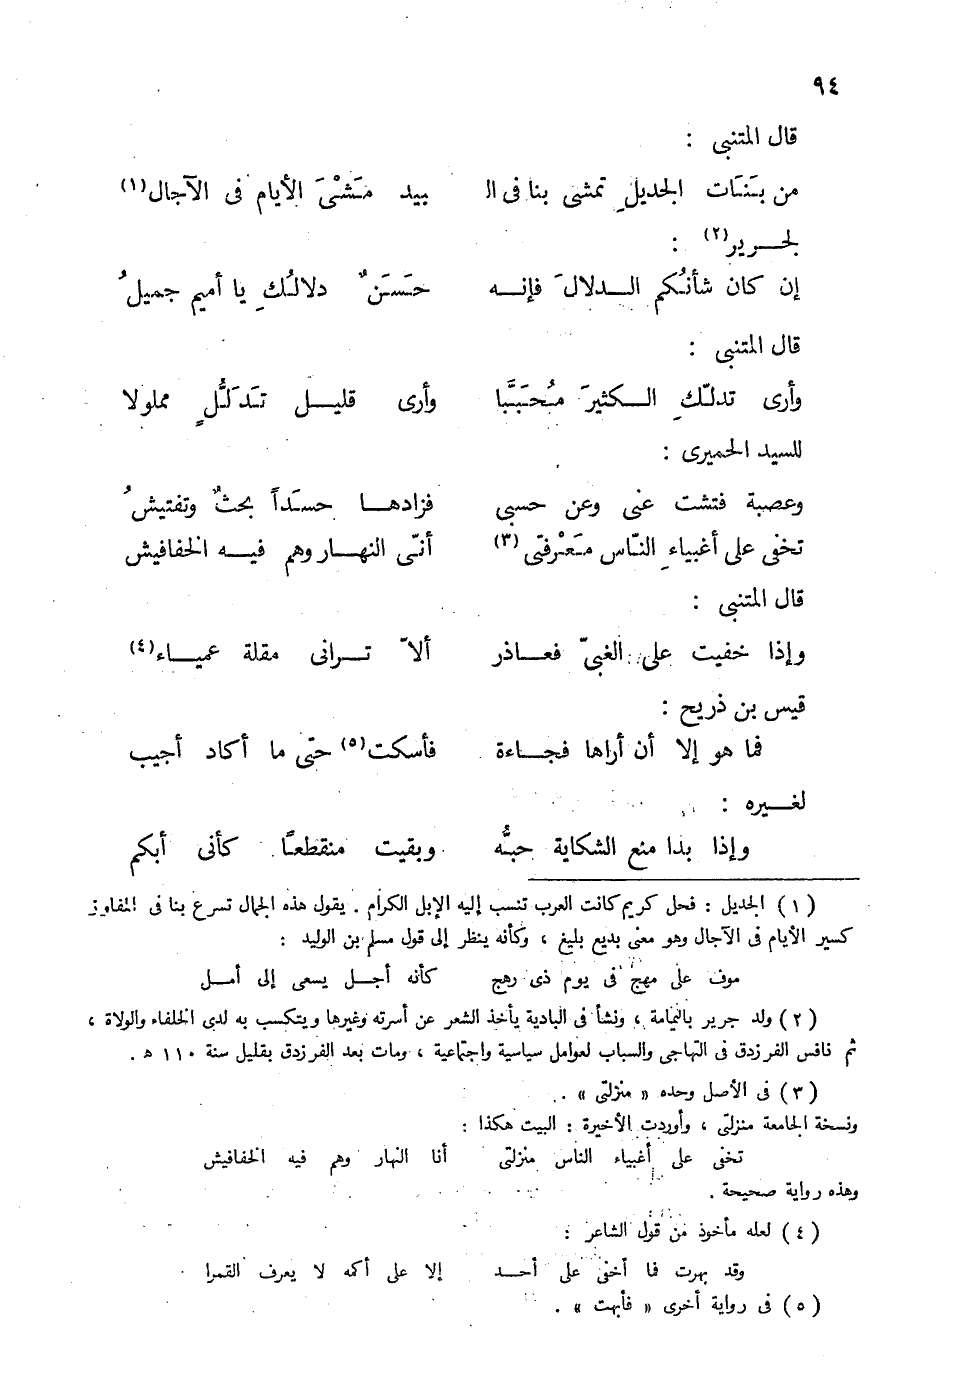 ٩٤
قال المتنبى :
من بَنَات الجديلِ تمشى بنا فى الـ بيد مَشْىَ الأيام فى الآجال(١)
لجـرير(٢) :
إن كان شأنُكم الـدلالَ فإنـه حَسَنٌ دلالُكِ يا أميم جميلُ
قال المتنبى :
وأرى تدلّلكِ الـكثيرَ مُحَبَّبًا وأرى قليـل تَدَلُّلٍ مملولا
للسيد الحميرى :
وعصبة فتشت عنى وعن حسبى فزادهـا حسَداً بحثٌ وتفتيشُ
تخفى على أغبياءِ النّاس مَعْرفتى(٣) أنّى النهـار وهم فيـه الخفافيش
قال المتنبى :
وإذا خفيت على الغبىّ فعـاذر ألاّ تـرانى مقلة عميـاء(٤)
قيس بن ذريح :
فما هو إلا أن أراها فجـاءة فأسكت(٥) حتّى ما أكاد أجيب
لغـيره :
وإذا بدا منع الشكاية حبُّه وبقيت منقطعًا كأنى أبكم
(١) الجديل : فحل كريم كانت العرب تنسب إليه الإبل الكرام . يقول هذه الجمال تسرع بنا فى المفاوز
كسير الأيام فى الآجال وهو معنى بديع بليغ ، وكأنه ينظر إلى قول مسلم بن الوليد :
موف على مهج فى يوم ذى رهج كأنه أجـل يسعى إلى أمـل
(٢) ولد جرير باليمامة ، ونشأ فى البادية يأخذ الشعر عن أسرته وغيرها ويتكسب به لدى الخلفاء والولاة ،
ثم نافس الفرزدق فى التهاجى والسباب لعوامل سياسية واجتماعية ، ومات بعد الفرزدق بقليل سنة ١١٠ هـ .
(٣) فى الأصل وحده « منزلتى » .
ونسخة الجامعة منزلتى ، وأوردت الأخيرة : البيت هكذا :
تخفى على أغبياء الناس منزلتى أنا النهار وهم فيه الخفافيش
وهذه رواية صحيحة .
(٤) لعله مأخوذ من قول الشاعر :
وقد بهرت فما أخفى على أحـد إلا على أكمه لا يعرف القمرا
(٥) فى رواية أخرى « فأبهت » .